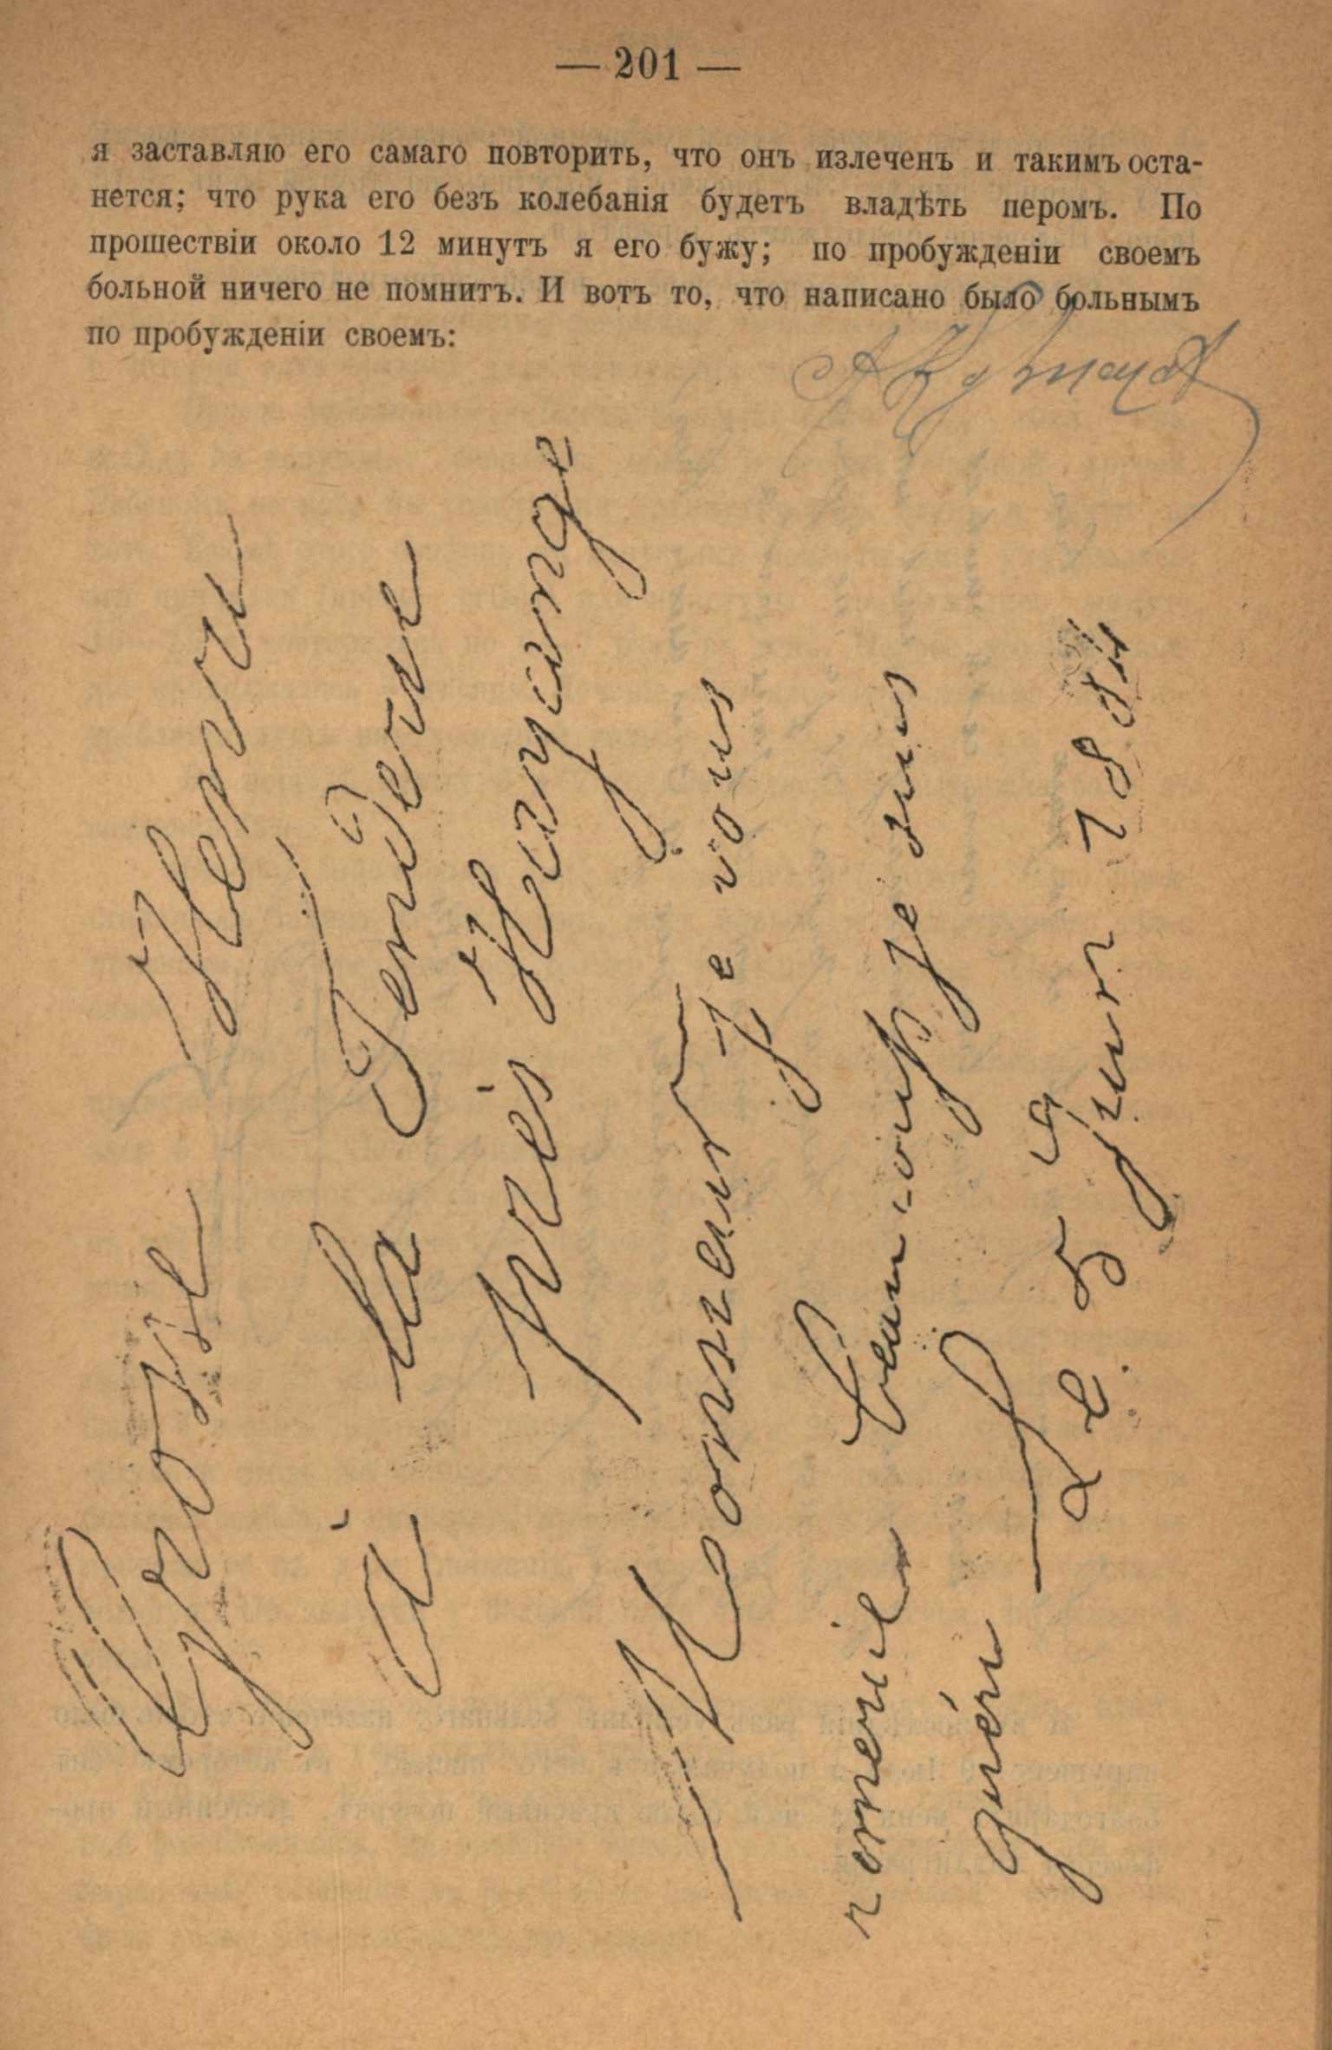 — 201 —
я заставляю его самаго повторить, что онъ излеченъ и такимъ оста-
нется; что рука его безъ колебанія будетъ владѣть перомъ. По
прошествіи около 12 минутъ я его бужу; по пробужденіи своемъ
больной ничего не помнитъ. И вотъ то, что написано было больнымъ
по пробужденіи своемъ:
Grosse
à la
très Hayange
Monsieur je vous
remercie beaucoup je suis
guéri
Le 5 Juin 188